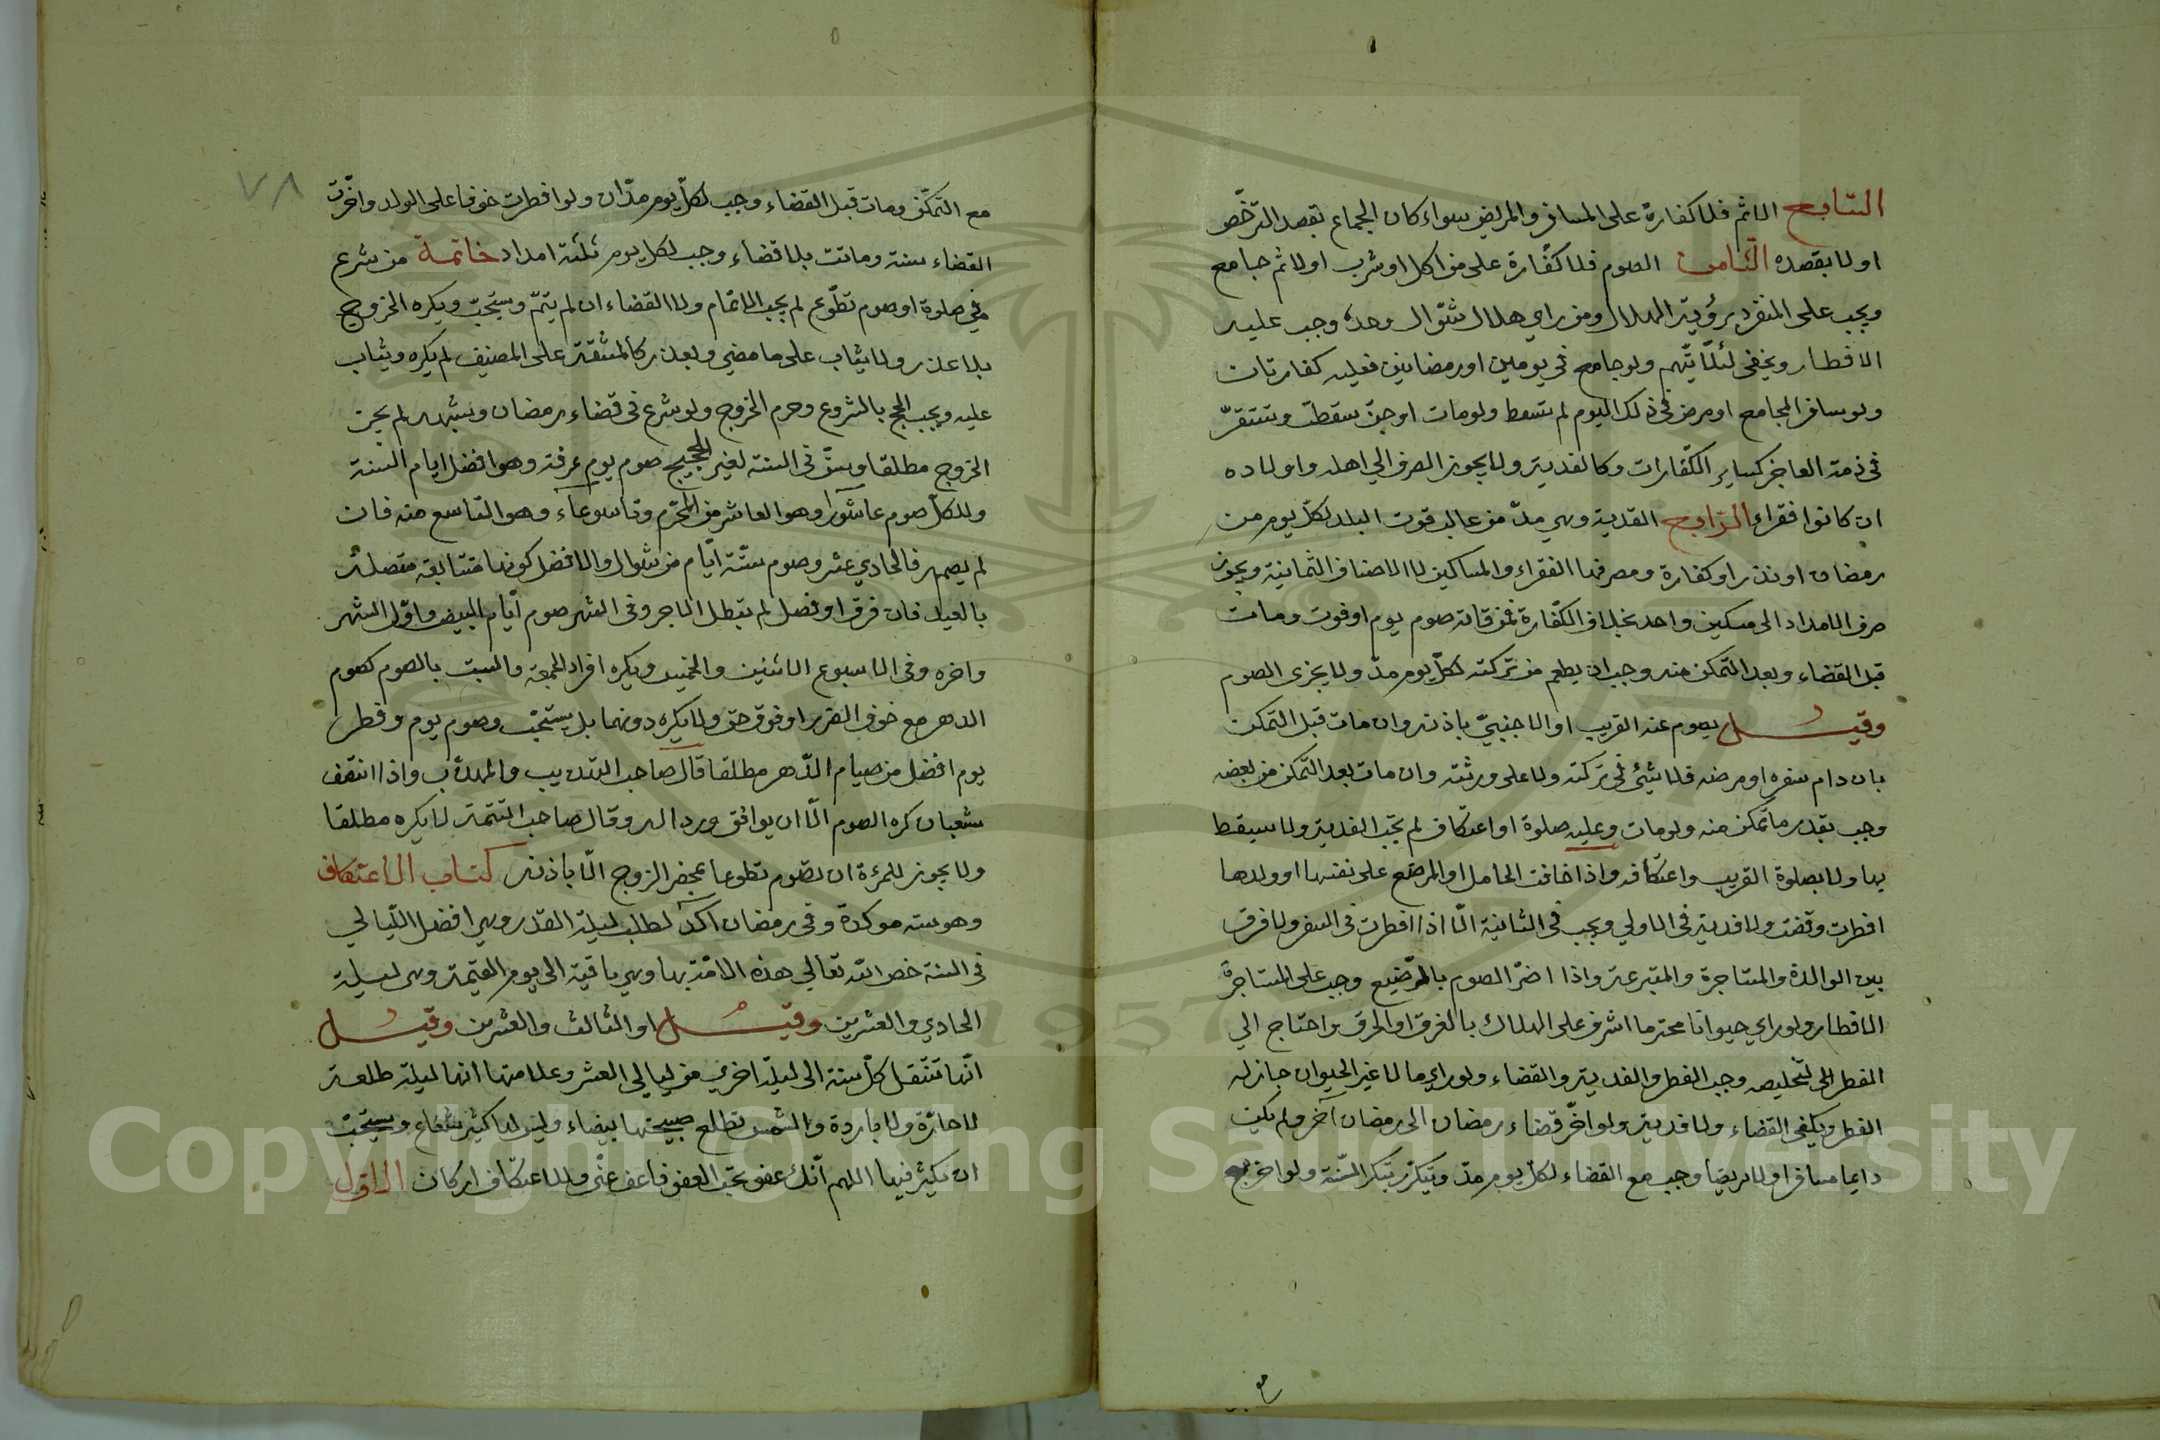 السابع الاثم فلا كفارة على المسافر والمريض سواء كان الجماع بقصد الترخّص
اولا بقصده الثامن الصوم فلا كفّارة على من اكل او شرب اولا ثم جامع
ويجب على المنفرد برؤية الهلال ومن راي هلال شوّال وحده وجب عليه
الافطار ويخفى لئلّا يتّهم ولو جامع في يومين او رمضانين فعليه كفارتان
ولو سافر المجامع او مرض في ذلك اليوم لم تسقط ولو مات او جنّ سقطت وتستقرّ
في ذمة العاجز كساير الكّفارات وكالفدية ولا يجوز الصرف الي اهله واولاده
ان كانوا فقراء الرّابع الفدية وهي مدّ من غالب قوت البلد لكلّ يوم من
رمضان او نذر او كفارة ومصرفها الفقراء والمساكين لا الاصناف الثمانية ويجوز
صرف الامداد الى مسكين واحد بخلاف الكفّارة فمن فاته صوم يوم او فوت ومات
قبل القضاء وبعد التمكن منه وجب ان يطعم من تركته لكلّ يوم مدّ ولا يجزى الصوم
وقيل يصوم عنه القريب او الاجنبيّ باذنه وان مات قبل التمكن
بان دام سفره او مرضه فلا شئ في تركته ولا على ورثته وان مات بعد التمكن من بعضه
وجب بقدر ما تمكن منه ولو مات وعليه صلوة او اعتكاف لم تجب الفدية ولا سيقط
بها ولا بصلوة القريب واعتكافه واذا خافت الحامل او المرضع على نفسها او ولدها
افطرت وقضت ولا فدية في الاولي ويجب في الثانية الّا اذا افطرت في السفر ولا فرق
بين الوالدة والمستاجرة والمتبرعة واذا اضرّ الصوم بالرّضيع وجب على المستاجرة
الافطار ولو راي حيوانا محترما اشرف على الهلاك بالغرق او الحرق واحتاج الي
الفطر الى تخليصه وجب الفطر والفدية والقضاء ولو راي مالا غير الحيوان جاز له
الفطر ويكفي القضاء ولا فدية ولو اخّر قضاء رمضان الى رمضان آخر ولم يكن
دايما مسافرا ولا مريضا وجب مع القضاء لكلّ يوم مدّ ويتكرّر بتكرّر السّنة ولو اخر
مع
٧٨
مع التمكّن ومات قبل القضاء وجب لكلّ يوم مدّان ولو افطرت خوفا على الولد واخّرت
القضاء سنة وماتت بلا قضاء وجب لكل يوم ثلثة امداد خاتمة من شرع
في صلوة او صوم تطوّع لم يجب الاتمام ولا القضاء ان لم يتمّ ويستحبّ ويكره الخروج
بلا عذر ولا يثاب على ما مضي وبعذر كالمشقّة على المضيف لم يكره ويثاب
عليه ويجب الحج بالشروع وحرم الخروج ولو شرع في قضاء رمضان وشبهه لم يجز
الخروج مطلقا وسنّ في السنة لغير الحجيج صوم يوم عرفة وهو افضل ايام السنة
وللكلّ صوم عاشورا وهو العاشر من المحرّم وتاسوعاء وهو التاسع منه فان
لم يصمه فالحادي عشر وصوم ستّة ايّام من شوال والافضل كونها متتابعة متصلة
بالعيد فان فرق او فصل لم يبطل الاجر وفي الشهر صوم ايّام البيض واوّل الشهر
واخره وفي الاسبوع الاثنين والخميس ويكره افراد الجمعة والسبت بالصوم كصوم
الدهر مع خوف الضرر او فوق حق ولا يكره دونهما بل يستحبّ وصوم يوم وفطر
يوم افضل من صيام الدّهر مطلقا قال صاحب التدريب والمهذّب واذا انتقف
شعبان كره الصوم الّا ان يوافق وردا له وقال صاحب التتمة لا يكره مطلقا
ولا يجوز للمرءة ان تصوم تطوعا بمحضر الزوج الّا باذنه كتاب الاعتكاف
وهو سنه موكدة وفي رمضان اكد لطلب ليلة القدر وهي افضل اللّيالي
في السنة خص الله تعالي هذه الامّة بها وهي باقية الى يوم القيمة وهي ليلة
الحادي والعشرين وقيل او الثالث والعشرين وقيل
انّها تنتقل كلّ سنة الى ليلة اخري من ليالي العشر وعلامتها انها ليلة طلعة
لا حارّة ولا باردة والشمس تطلع صبيحتها بيضاء وليس لها كثير شعاع ويستحبّ
ان يكثر فيها اللهم انّك عفو تحبّ العفو فاعف عنّي وللاعتكاف اركان الاوّل
Copyright © King Saud University
1957